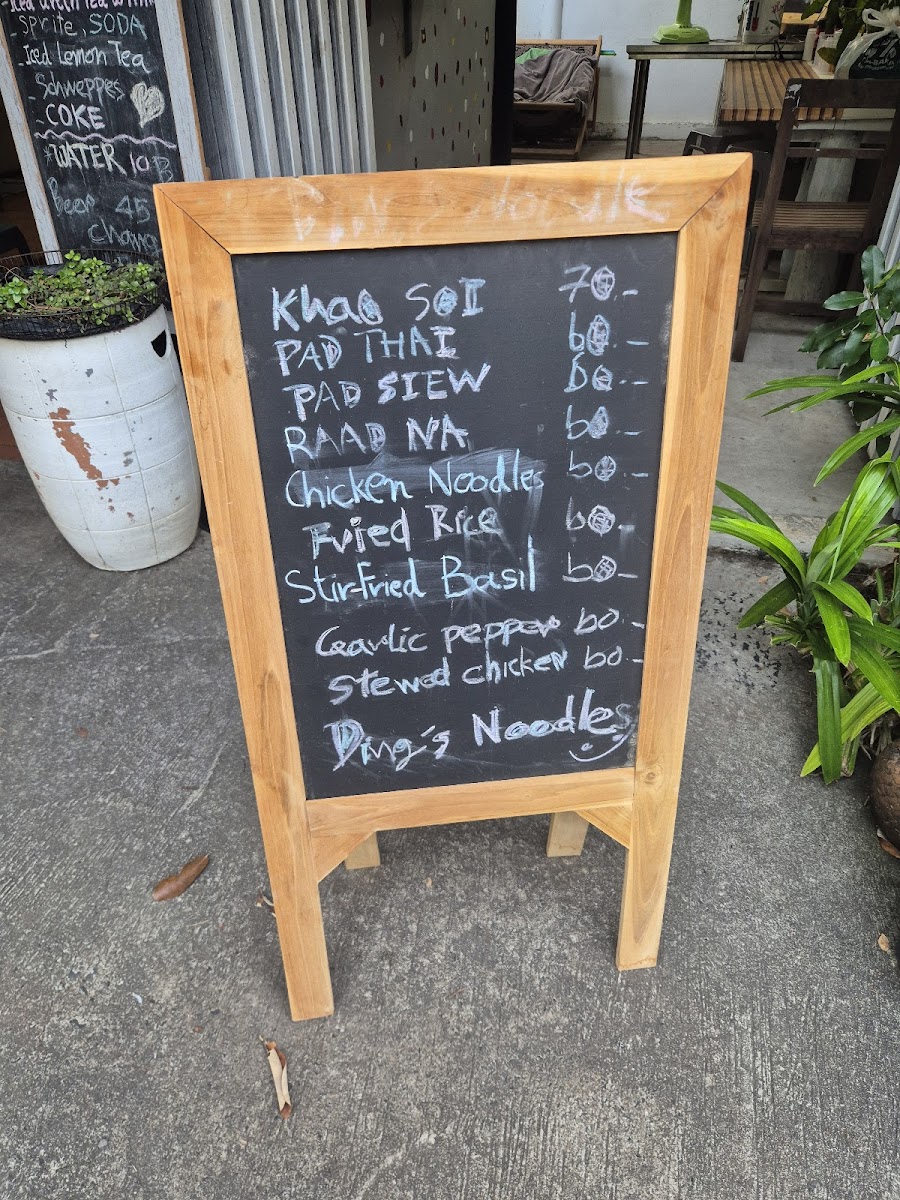 Sprite, SODA
- Iced Lemon Tea
- Schweppes
- COKE
*WATER 10 B
Beer 45
chang
Noodle
Khao SOI 70.-
PAD THAI 60.-
PAD SIEW 60.-
RAAD NA 60.-
Chicken Noodles 60.-
Fried Rice 60.-
Stir-Fried Basil 60.-
Garlic pepper 60.-
Stewed chicken 60.-
Ding's Noodles